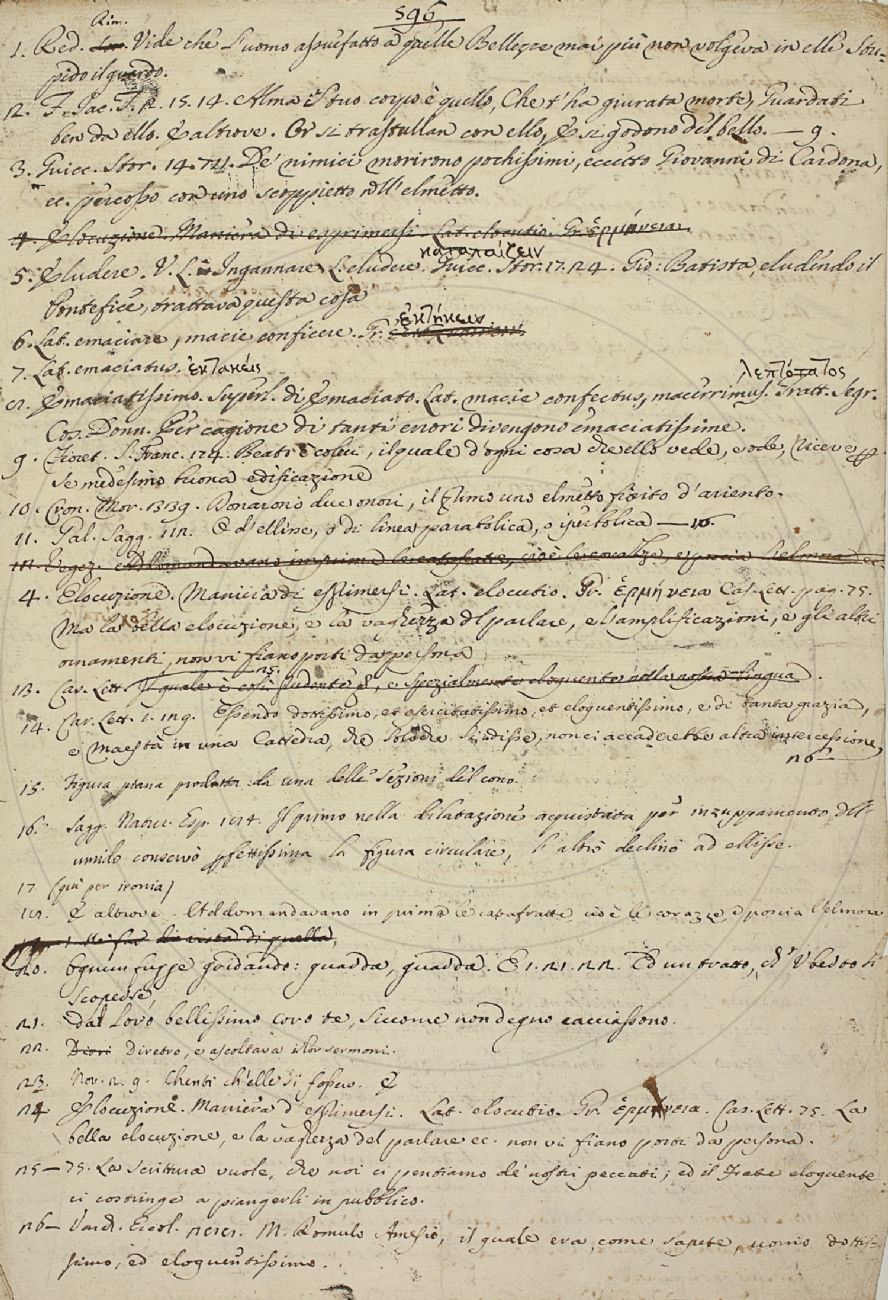 596
Rim.
1. Red. Vide che l'uomo assuefatto a quelle Bellezze mai più non volgeva in elle stu=
pido il guardo.
2. F. Jac. T. 2. 15. 14. Alma il tuo corpo è quello, Che t'ha giurata morte, Guardati
ben da ello. E altrove. Or si trastullan con ello, E si godono del bello. — 9.
3. Guicc. Stor. 14. 741. De' nimici morirono pochissimi, eccetto Giovanni di Cardona,
ec. percosso con uno scoppietto nell'elmetto.
4. Elocuzione. Maniera di esprimersi. Lat. elocutio. Gr. ἑρμήνεια.
καταπαίζειν
5. Eludere. V. L. Ingannare L. eludere. Guicc. Stor. 17. 24. Gio: Batista, eludendo il
Pontefice, trattava questa cosa
ἐκτήκειν
6. Lat. emaciare, macie conficere. Gr.
7. Lat. emaciatus. ἐκτακείς
λεπτότατος
8. Emaciatissimo. Superl. di Emaciato. Lat. macie confectus, macerrimus. Tratt. Segr.
Cos. Donn. Per cagione di tanti errori divengono emaciatissime.
9. Fioret. S. Franc. 124. Beato è colui, il quale d'ogni cosa che ello vede, e ode, riceve
se medesimo buona edificazione
10. Cron. Mor. 339. Donarono due onori, il primo uno elmetto fiorito d'ariento.
11. Gal. Sagg. O d'elline, o di linea parabolica, o iperbolica — 16.
12. Vegez. Addomandavano in prima le catafratte, cioè le corazze, e poscia l'elmora ec.
4. Elocuzione. Maniera di esprimersi. Lat. elocutio. Gr. ἑρμήνεια Cas. Lett. pag. 75.
Ma la bella elocuzione, e la vaghezza del parlare, e l'amplificazioni, e gli altri
ornamenti, non vi fiano porti da persona
25.
13. Cas. Lett. Il quale è essi prudente e spezialmente eloquente nella nostra lingua.
14. Car. Lett. 1. Essendo dottissimo, et esercitatissimo, et eloquentissimo, e di tanta grazia,
e maestà in una Catedra, che non ci accaderebbe altra intercessione,
26
15. Figura piana prodotta da una delle sezioni del cono.
16. Sagg. Natur. Esp. Il primo nella dilatazione acquistata per inzuppamento dell'
umido conservò perfettissima la figura circulare, l'altro declinò ad ellisse.
17 (qui per ironia)
18. E altrove. Addomandavano in prima le catafratte, cioè le corazze, e poscia l'elmora
di vista di quella,
20. Ognun fugge gridando: guarda, guarda. E 1. 21. 22. Ed un tratto, ch'
scoperse,
21. dal loro bellissimo coro te, siccome non degno cacciassono.
22. Diori diretro, e ascoltava i lor sermoni.
23. Nov. 2. 9. Chenti ch'elle si fosseno. E
24. Elocuzione. Maniera d'esprimersi. Lat. elocutio. Gr. ἑρμήνεια. Cas. Lett. 75. La
bella elocuzione, e la vaghezza del parlare ec. non vi fiano porti da persona.
25— 75. La scrittura vuole, che noi ci pentiamo de' nostri peccati; ed il Frate eloquente
ci costringe a piangerli in pubblico.
26— Vard. Ercol. M. Romulo Amaseo, il quale era, come sapete, uomo dottis=
simo, ed eloquentissimo.